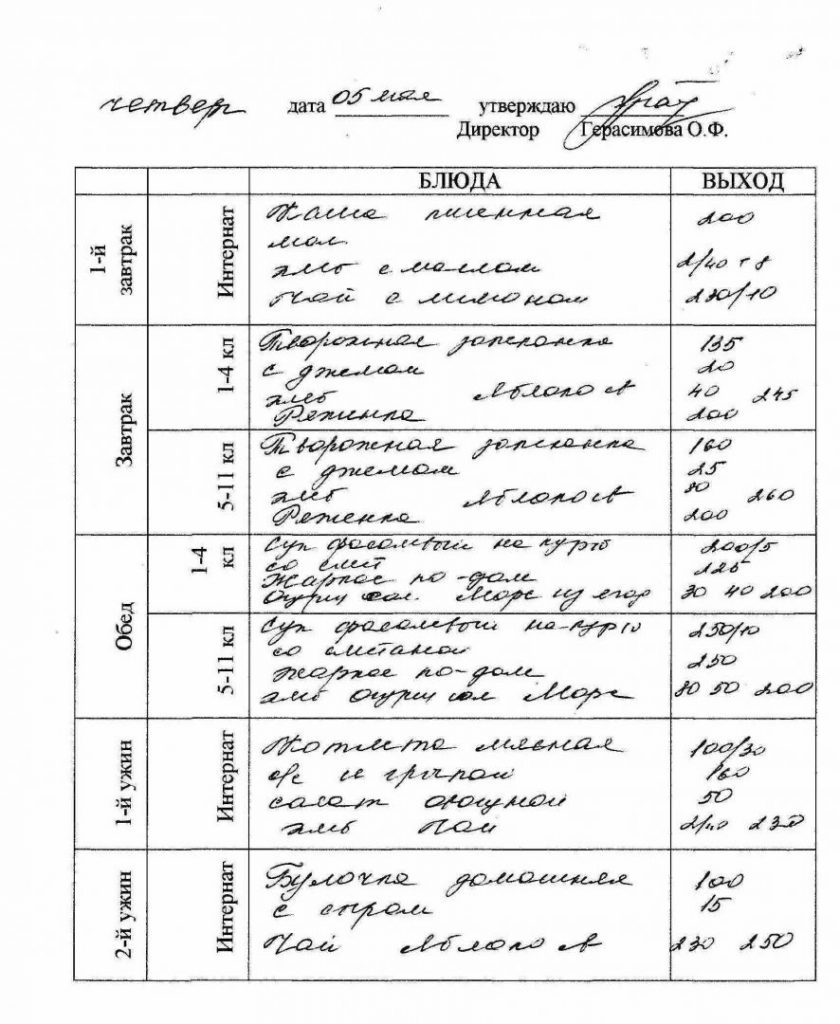 четвер дата 05 мая утверждаю
Директор Герасимова О.Ф.
БЛЮДА ВЫХОД
1-й завтрак Интернат
Каша пшенная 200
мол.
хлеб с маслом 2/40 + 8
Чай с лимоном 230/10
Завтрак 1-4 кл
Творожная запеканка 135
с джемом 20
хлеб Яблоко 40 245
Ряженка 200
5-11 кл
Творожная запеканка 160
с джемом 25
хлеб Яблоко 80 260
Ряженка 200
Обед 1-4 кл
Суп фасолевый на 200/5
со смет 225
Жаркое по-дом
Огурец сол. Морс из ягод 30 40 200
5-11 кл
Суп фасолевый на 250/10
со сметаной 250
Жаркое по-дом
хлеб Огурец сол Морс 80 50 200
1-й ужин Интернат
Котлета мясная 100/30
и гречкой 160
салат овощной 50
хлеб Чай 2/40 230
2-й ужин Интернат
Булочка домашняя 100
с сыром 15
Чай Яблоко 230 250